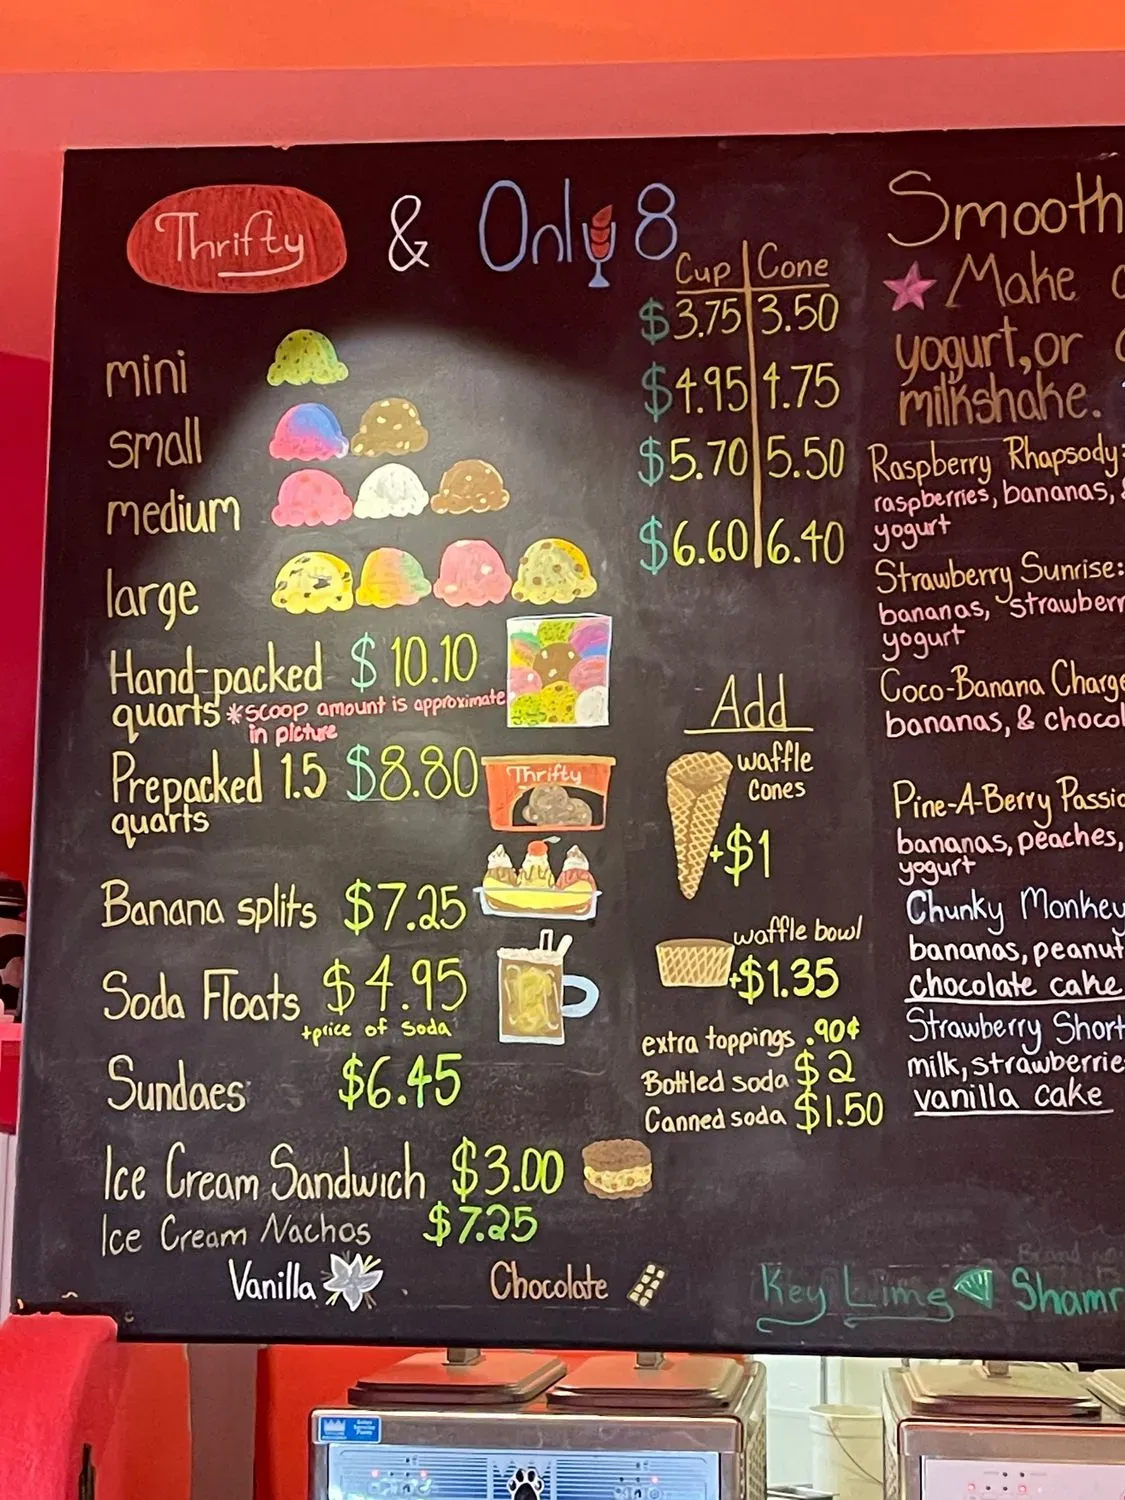 Thrifty & Only 8
Cup Cone
mini $3.75 3.50
small $4.95 4.75
medium $5.70 5.50
large $6.60 6.40
Hand-packed $10.10
quarts *scoop amount is approximate
in picture
Prepacked 1.5 $8.80
quarts
Thrifty
Banana splits $7.25
Soda Floats $4.95
+price of soda
Sundaes $6.45
Ice Cream Sandwich $3.00
Ice Cream Nachos $7.25
Vanilla Chocolate
Add
waffle
cones
+$1
waffle bowl
+$1.35
extra toppings .90¢
Bottled soda $2
Canned soda $1.50
Smooth
Make
yogurt, or
milkshake.
Raspberry Rhapsody:
raspberries, bananas, &
yogurt
Strawberry Sunrise:
bananas, strawberr
yogurt
Coco-Banana Charge
bananas, & chocol
Pine-A-Berry Passio
bananas, peaches,
yogurt
Chunky Monkey
bananas, peanut
chocolate cake
Strawberry Short
milk, strawberrie
vanilla cake
Key Lime Shamr